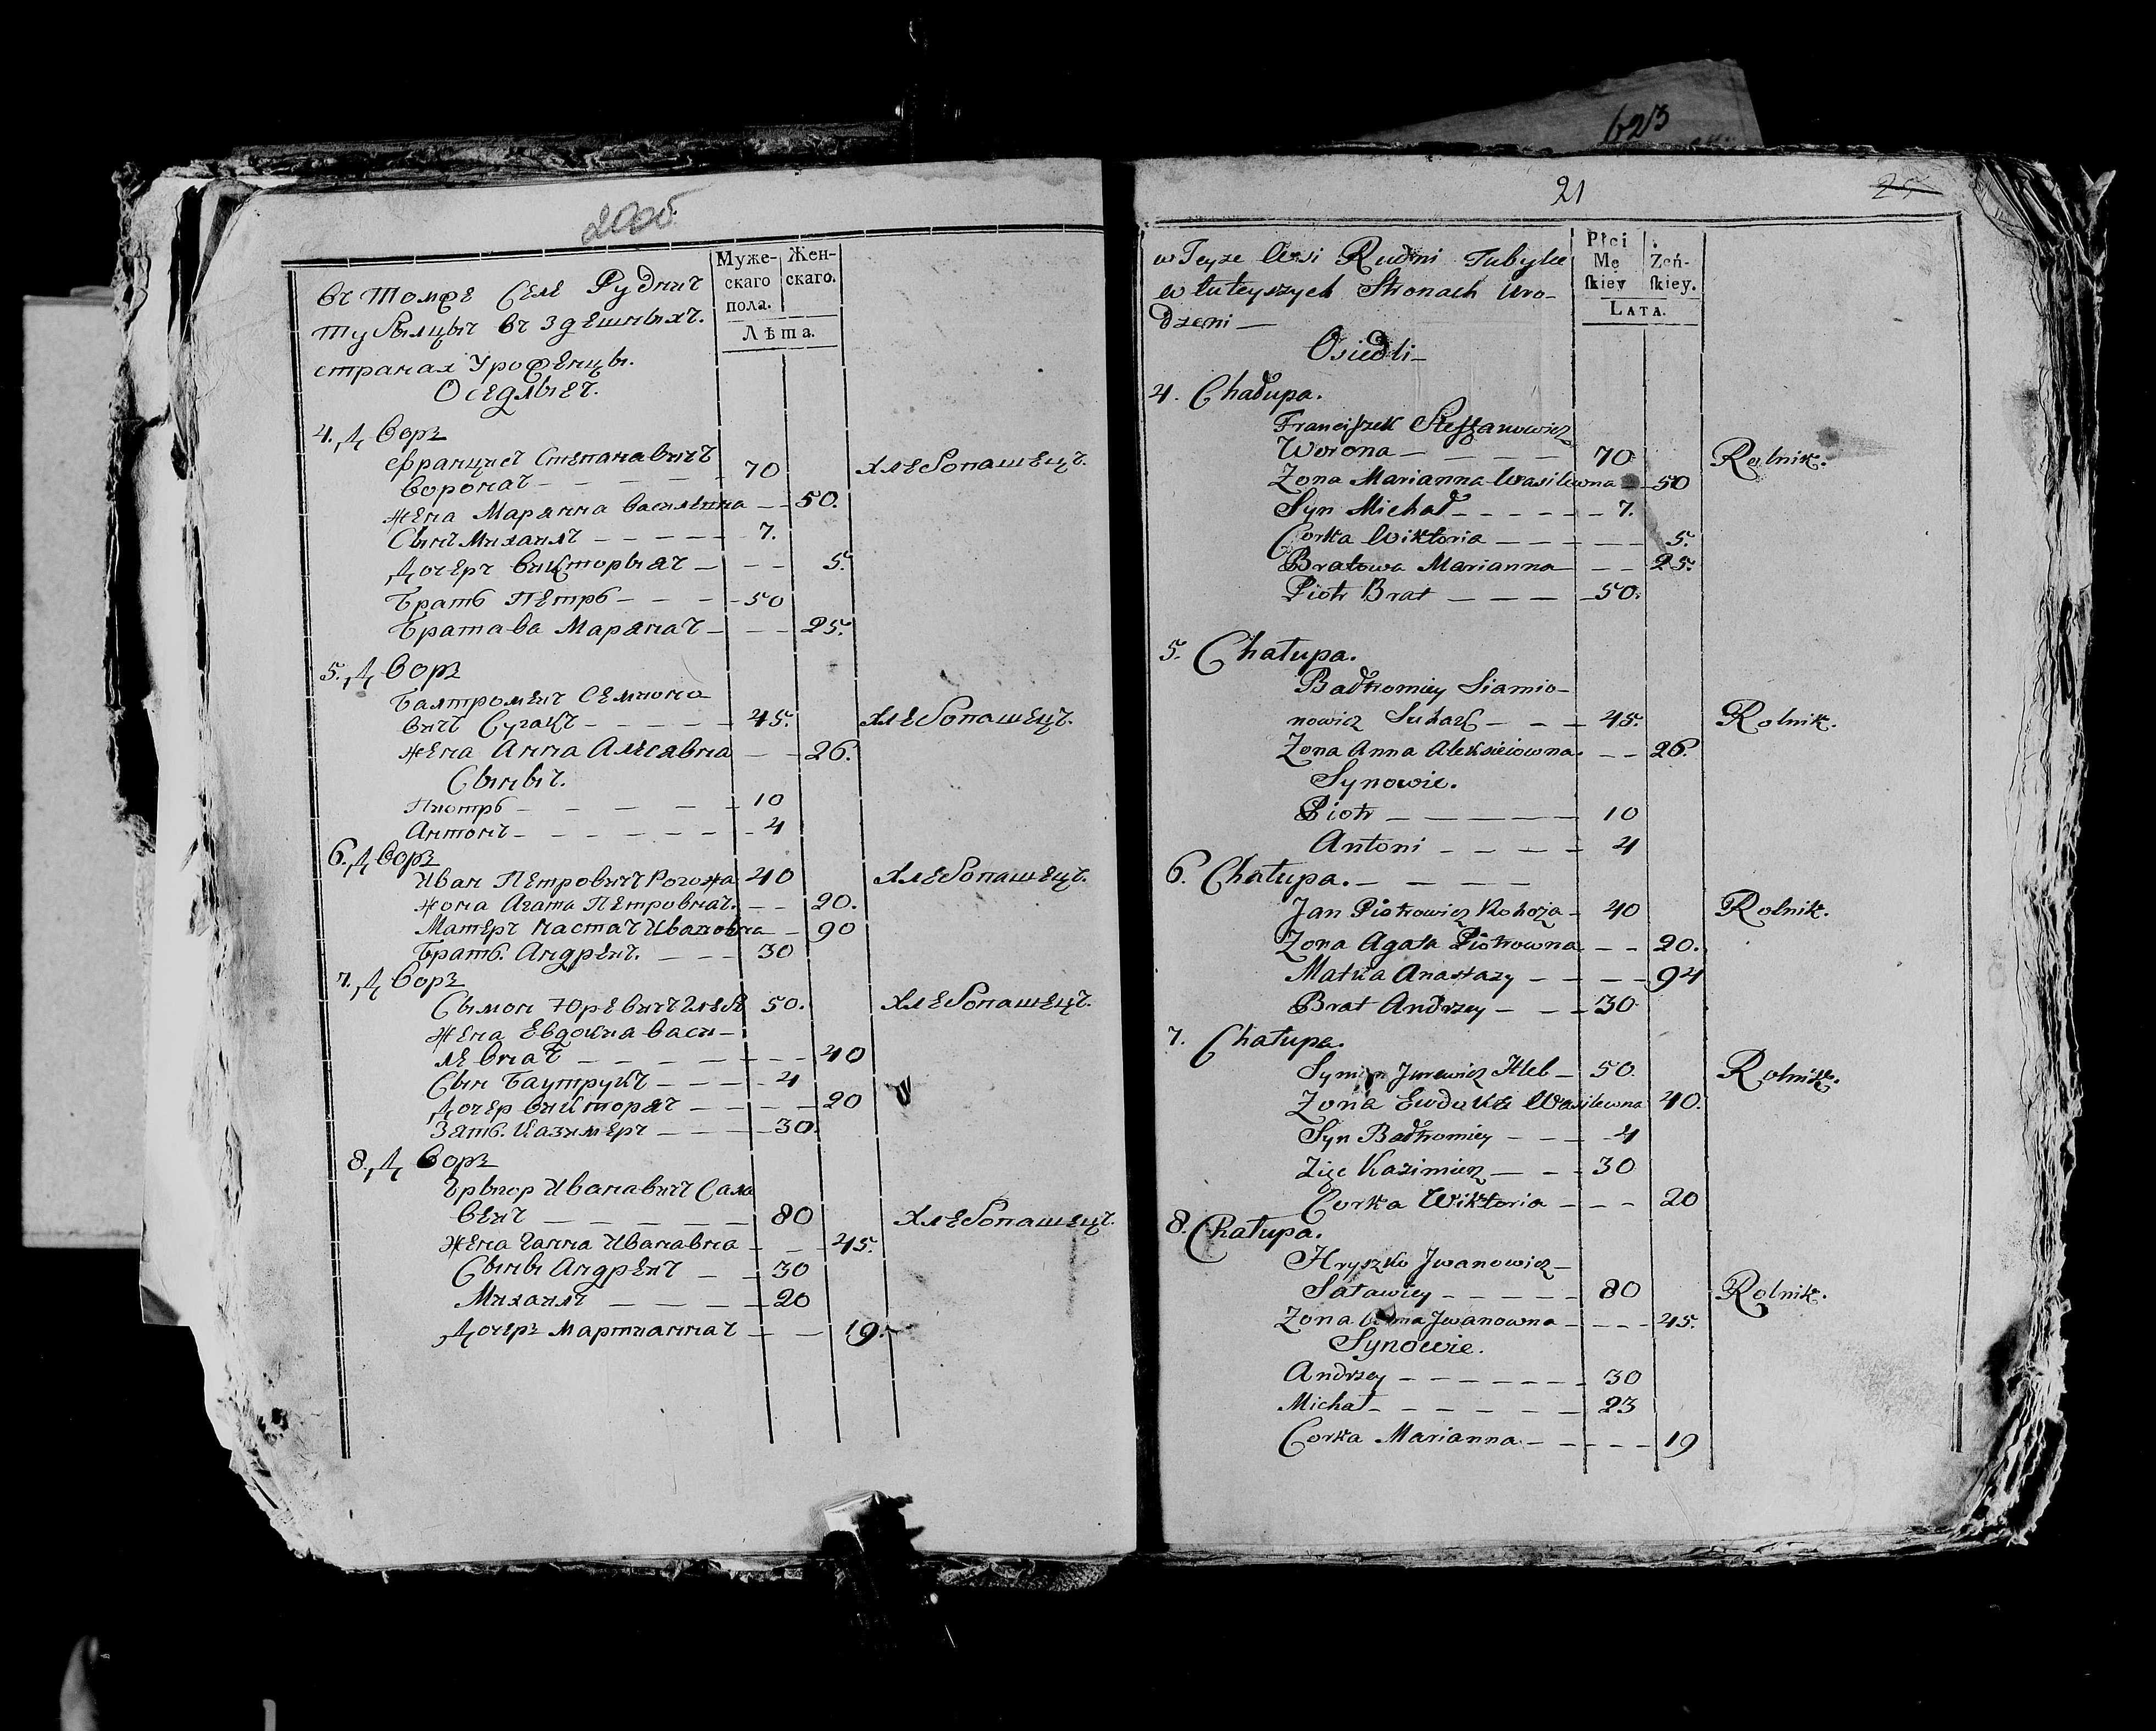 20об
Муже-
скаго
пола.
Жен-
скаго.
Лѣта.
въ томже селе Руднич
тубылцыч въ здешныхъ
странах Уроженцы.
Оседлыеч.
4. Дворъ
Францисч Степанавичъ
Воронач 70 Хлебопашецъ.
жена Марянна Василевна 50.
Сынъ Михаилъ 7.
Дочерч Викторыяч 5.
Братъ Петръ 50
Братава Марянач 25.
5. Дворъ
Балтромеич Семионо-
вичъ Сугакъ 45. Хлебопашецъ.
жена Анна Алесявна 26.
Сыныч.
Пиотръ 10
Антонъ 4
6. Дворъ
Иван Петровичъ Рогожа 40 Хлебопашецъ.
жона Агата Петровнач. 20.
Матерч Настач Ивановна 90
Братъ. Андреич. 30
7. Дворъ
Сымон Юревичъ Глеб 50. Хлебопашецъ.
жена Евдокия Васи-
левнач 40
Сын Баутрукъ 4
Дочер Викторяч 20
Зять. Казимерч 30.
8. Дворъ
Грыгор Иванавичъ Сала
веич 80 Хлебопашецъ.
жена Ганна Иванавна 45.
Сыны Андреич 30
Михаилъ 20
Дочеръ Мартианнач 19.
623
21
25
Płci
Mę
skiey
Żeń-
skiey.
LATA.
w Teyże Wsi Rudni Tubylce
w tuteyszych Stronach Uro-
dzeni
Osiedli
4. Chałupa.
Franciszek Steffanowicz
Worona 70 Rolnik.
Zona Marianna Wasilewna 50
Syn Michał 7.
Corka Wiktoria 5.
Bratowa Marianna 25.
Piotr Brat 50.
5. Chałupa.
Bałtromiey Siamio-
nowicz Suhak 45. Rolnik.
Zona Anna Aleksieiowna 26.
Synowie.
Piotr 10
Antoni 4
6. Chałupa.
Jan Piotrowicz Rohoża 40 Rolnik.
Zona Agata Piotrowna 20.
Matka Anastazy 94
Brat Andrzey 30
7. Chałupa.
Symon Jurewicz Hleb 50. Rolnik.
Zona Ewdokia Wasilewna 40.
Syn Bałtromiey 4
Zięc Kazimierz 30
Corka Wiktoria 20
8. Chałupa.
Hryszko Jwanowicz
Saławiey 80 Rolnik.
Zona Jwanowna 45.
Synowie.
Andrzey 30
Michał 23
Corka Marianna 19